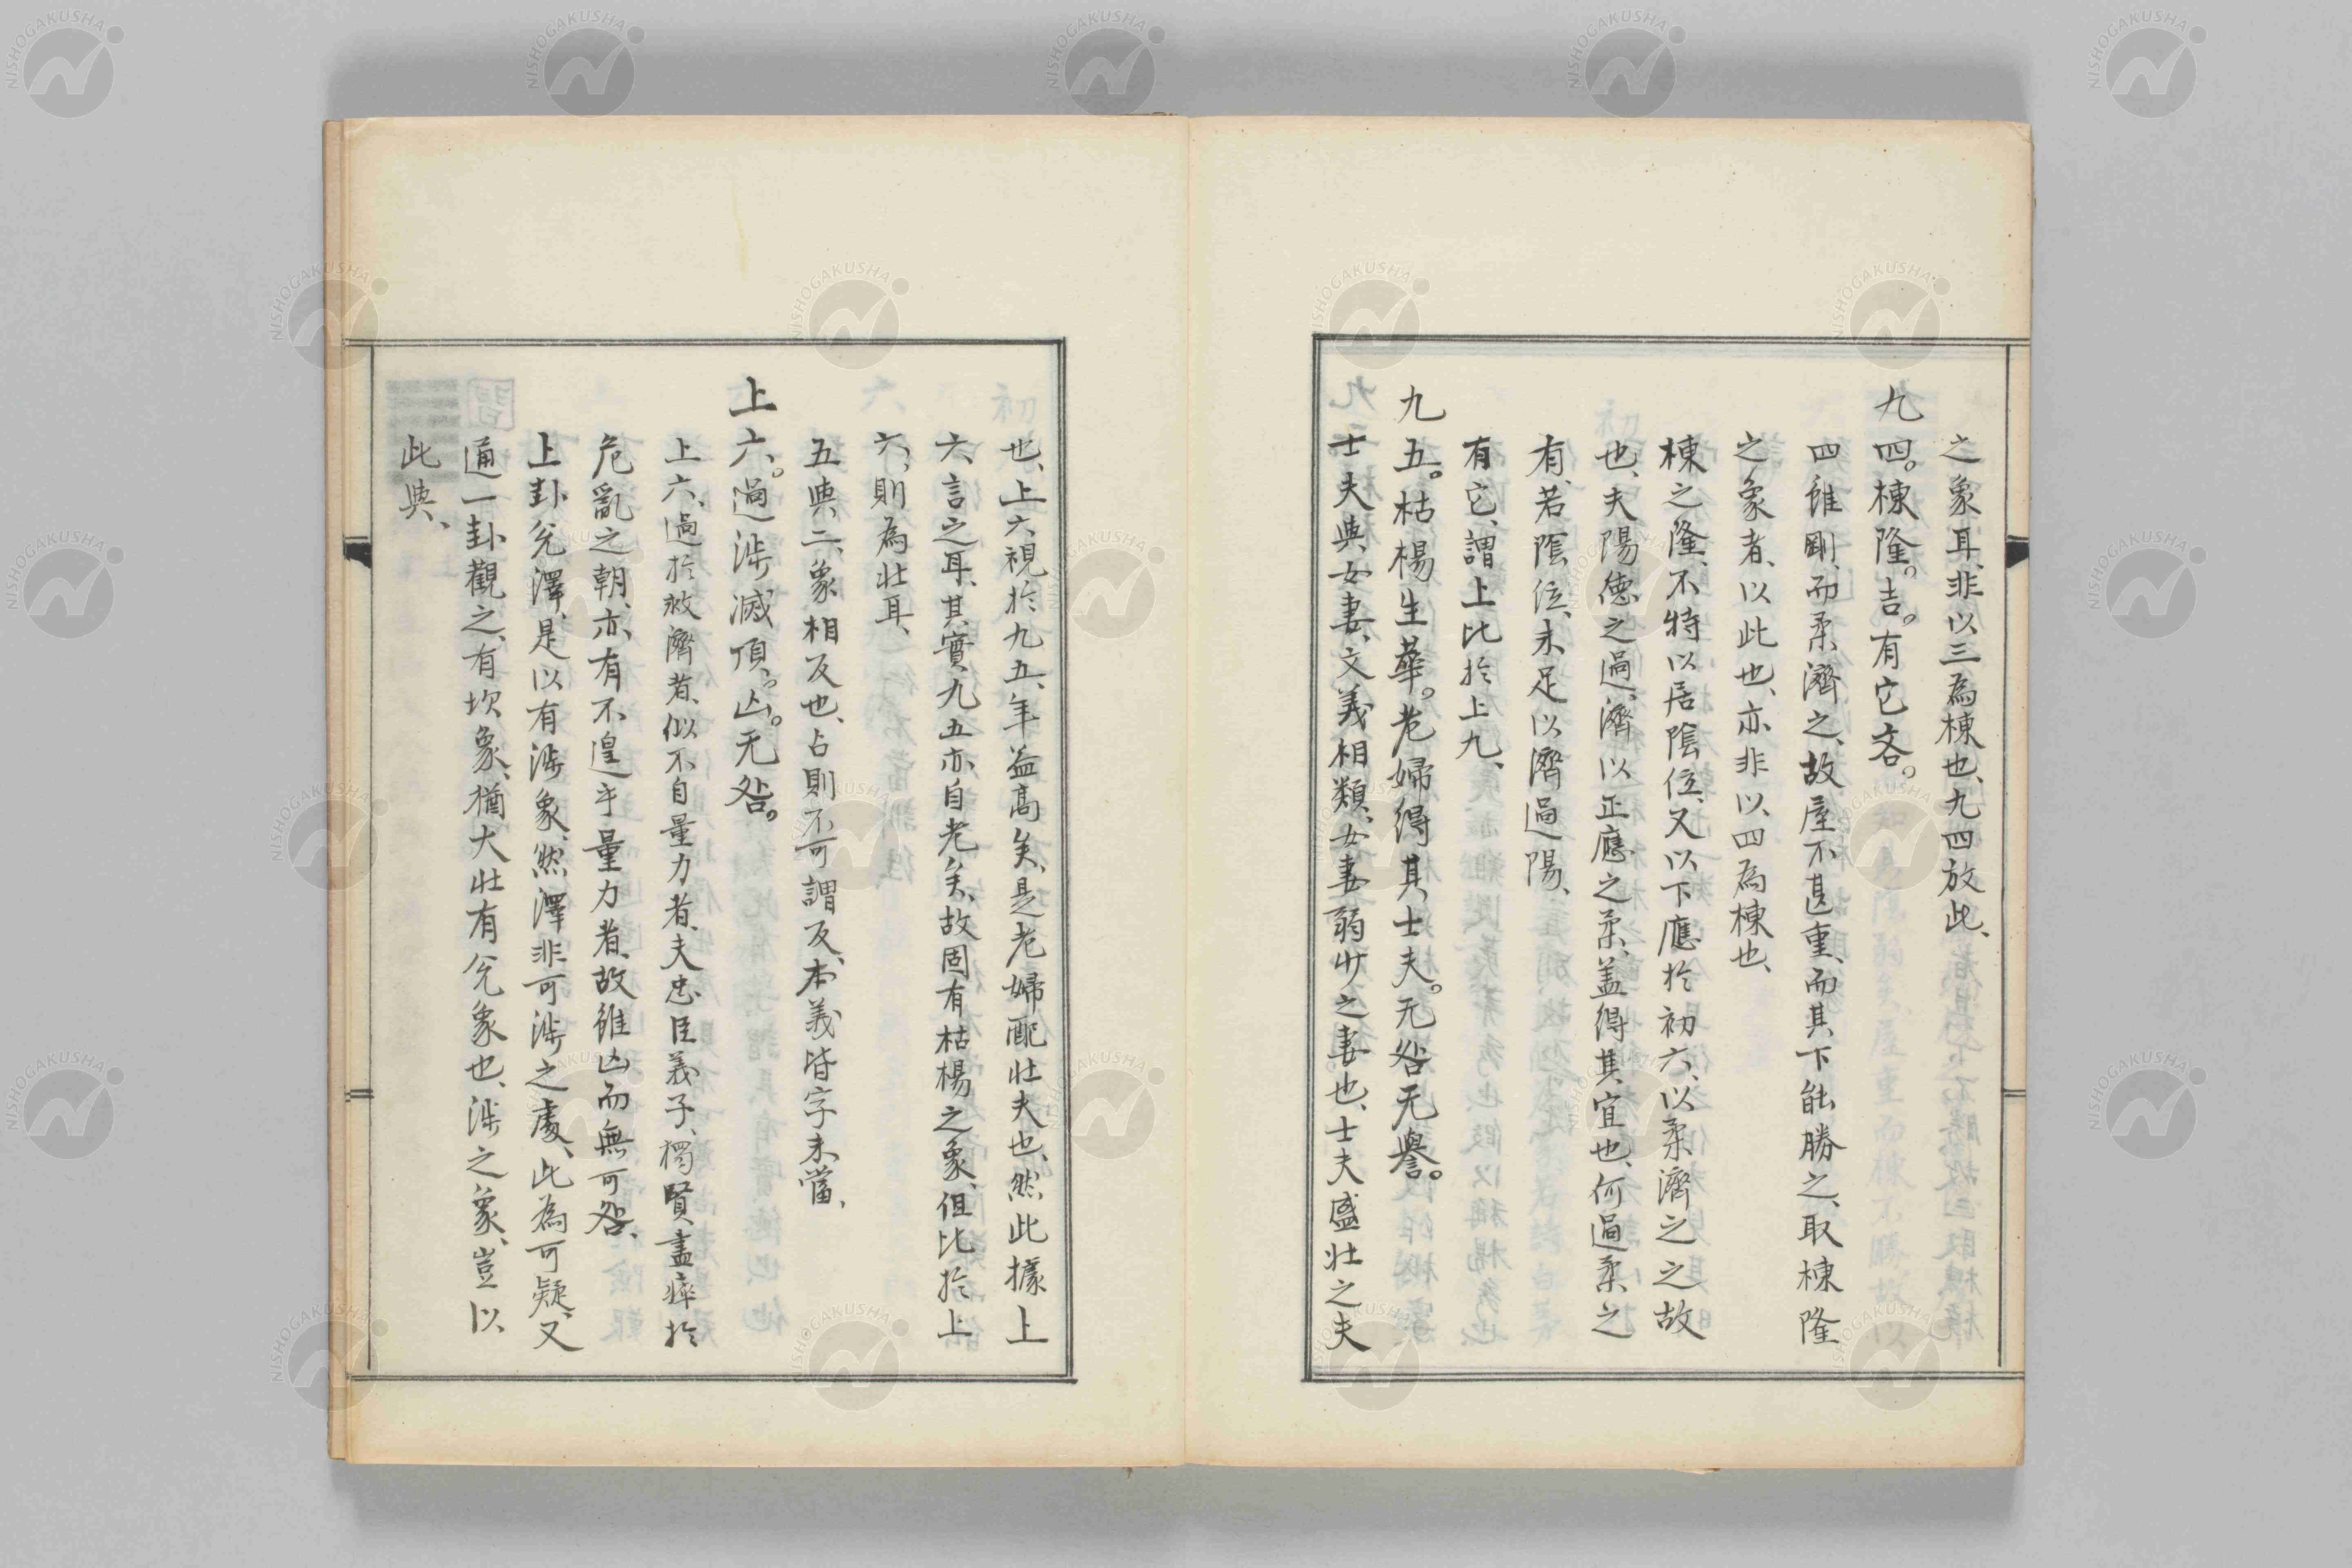 之象耳、非以三為棟也、九四放此、
九四。棟隆。吉。有它吝。
四雖剛、而柔濟之、故屋不甚重、而其下能勝之、取棟隆
之象者、以此也、亦非以四為棟也、
棟之隆、不特以居陰位、又以下應於初六、以柔濟之之故
也、夫陽德之過、濟以正應之柔、蓋得其宜也、何過柔之
有、若陰位、未足以濟過陽、
有它、謂上比於上九、
九五。枯楊生華。老婦得其士夫。无咎无譽。
士夫與女妻、文義相類、女妻弱少之妻也、士夫盛壯之夫
也、上六視於九五、年益高矣、是老婦配壯夫也、然此據上
六言之耳、其實九五亦自老矣、故固有枯楊之象、但比於上
六、則為壯耳、
五與二、象相反也、占則不可謂反、本義皆字未當、
上六。過涉滅頂。凶。无咎。
上六、過於救濟者、似不自量力者、夫忠臣義子、獨賢盡瘁於
危亂之朝、亦有不遑乎量力者、故雖凶而無可咎、
上卦兌澤、是以有涉象、然澤非可涉之處、此為可疑、又
通一卦觀之、有坎象、猶大壯有兌象也、涉之象、豈以
此與、
NISHOGAKUSHA